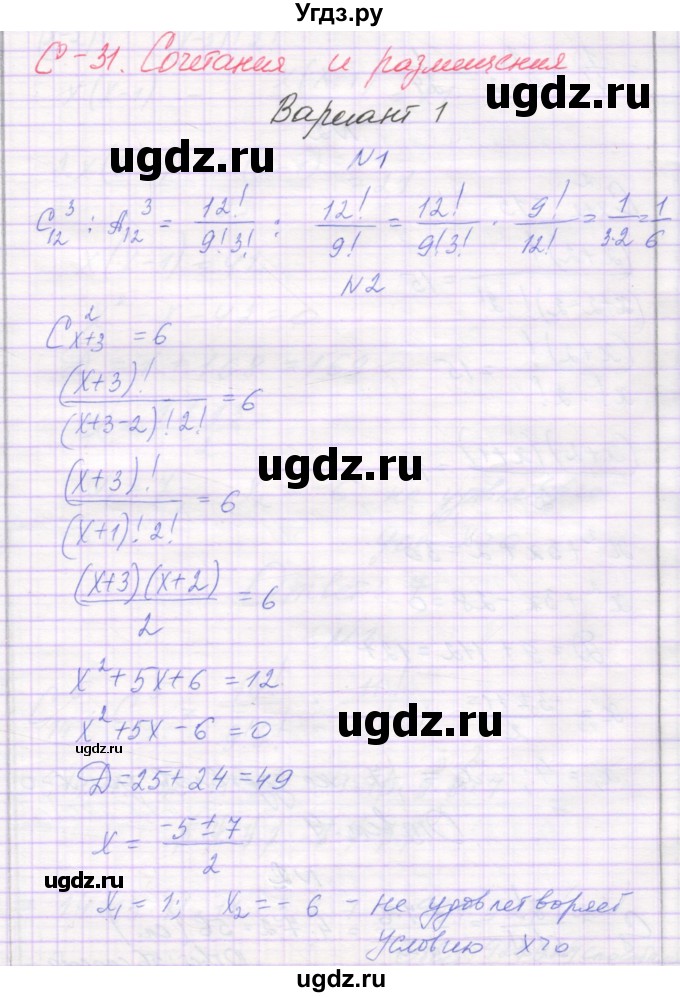 Угдз.ру
С-31. Сочетания и размещения
Вариант 1
ugdz.ru
ugdz.ru
N1
C₁₂³ : A₁₂³ = 12!/(9!3!) : 12!/9! = 12!/(9!3!) · 9!/12! = 1/(3·2) = 1/6
N2
C²ₓ₊₃ = 6
(x+3)!/((x+3-2)!2!) = 6
ugdz.ru
(x+3)!/((x+1)!2!) = 6
(x+3)(x+2)/2 = 6
x² + 5x + 6 = 12
ugdz.ru
x² + 5x - 6 = 0
ugdz.ru
D = 25 + 24 = 49
x = (-5 ± 7)/2
ugdz.ru
x₁ = 1; x₂ = - 6 - не удовлетворяет
ugdz.ru
условию x>0
ugdz.ru